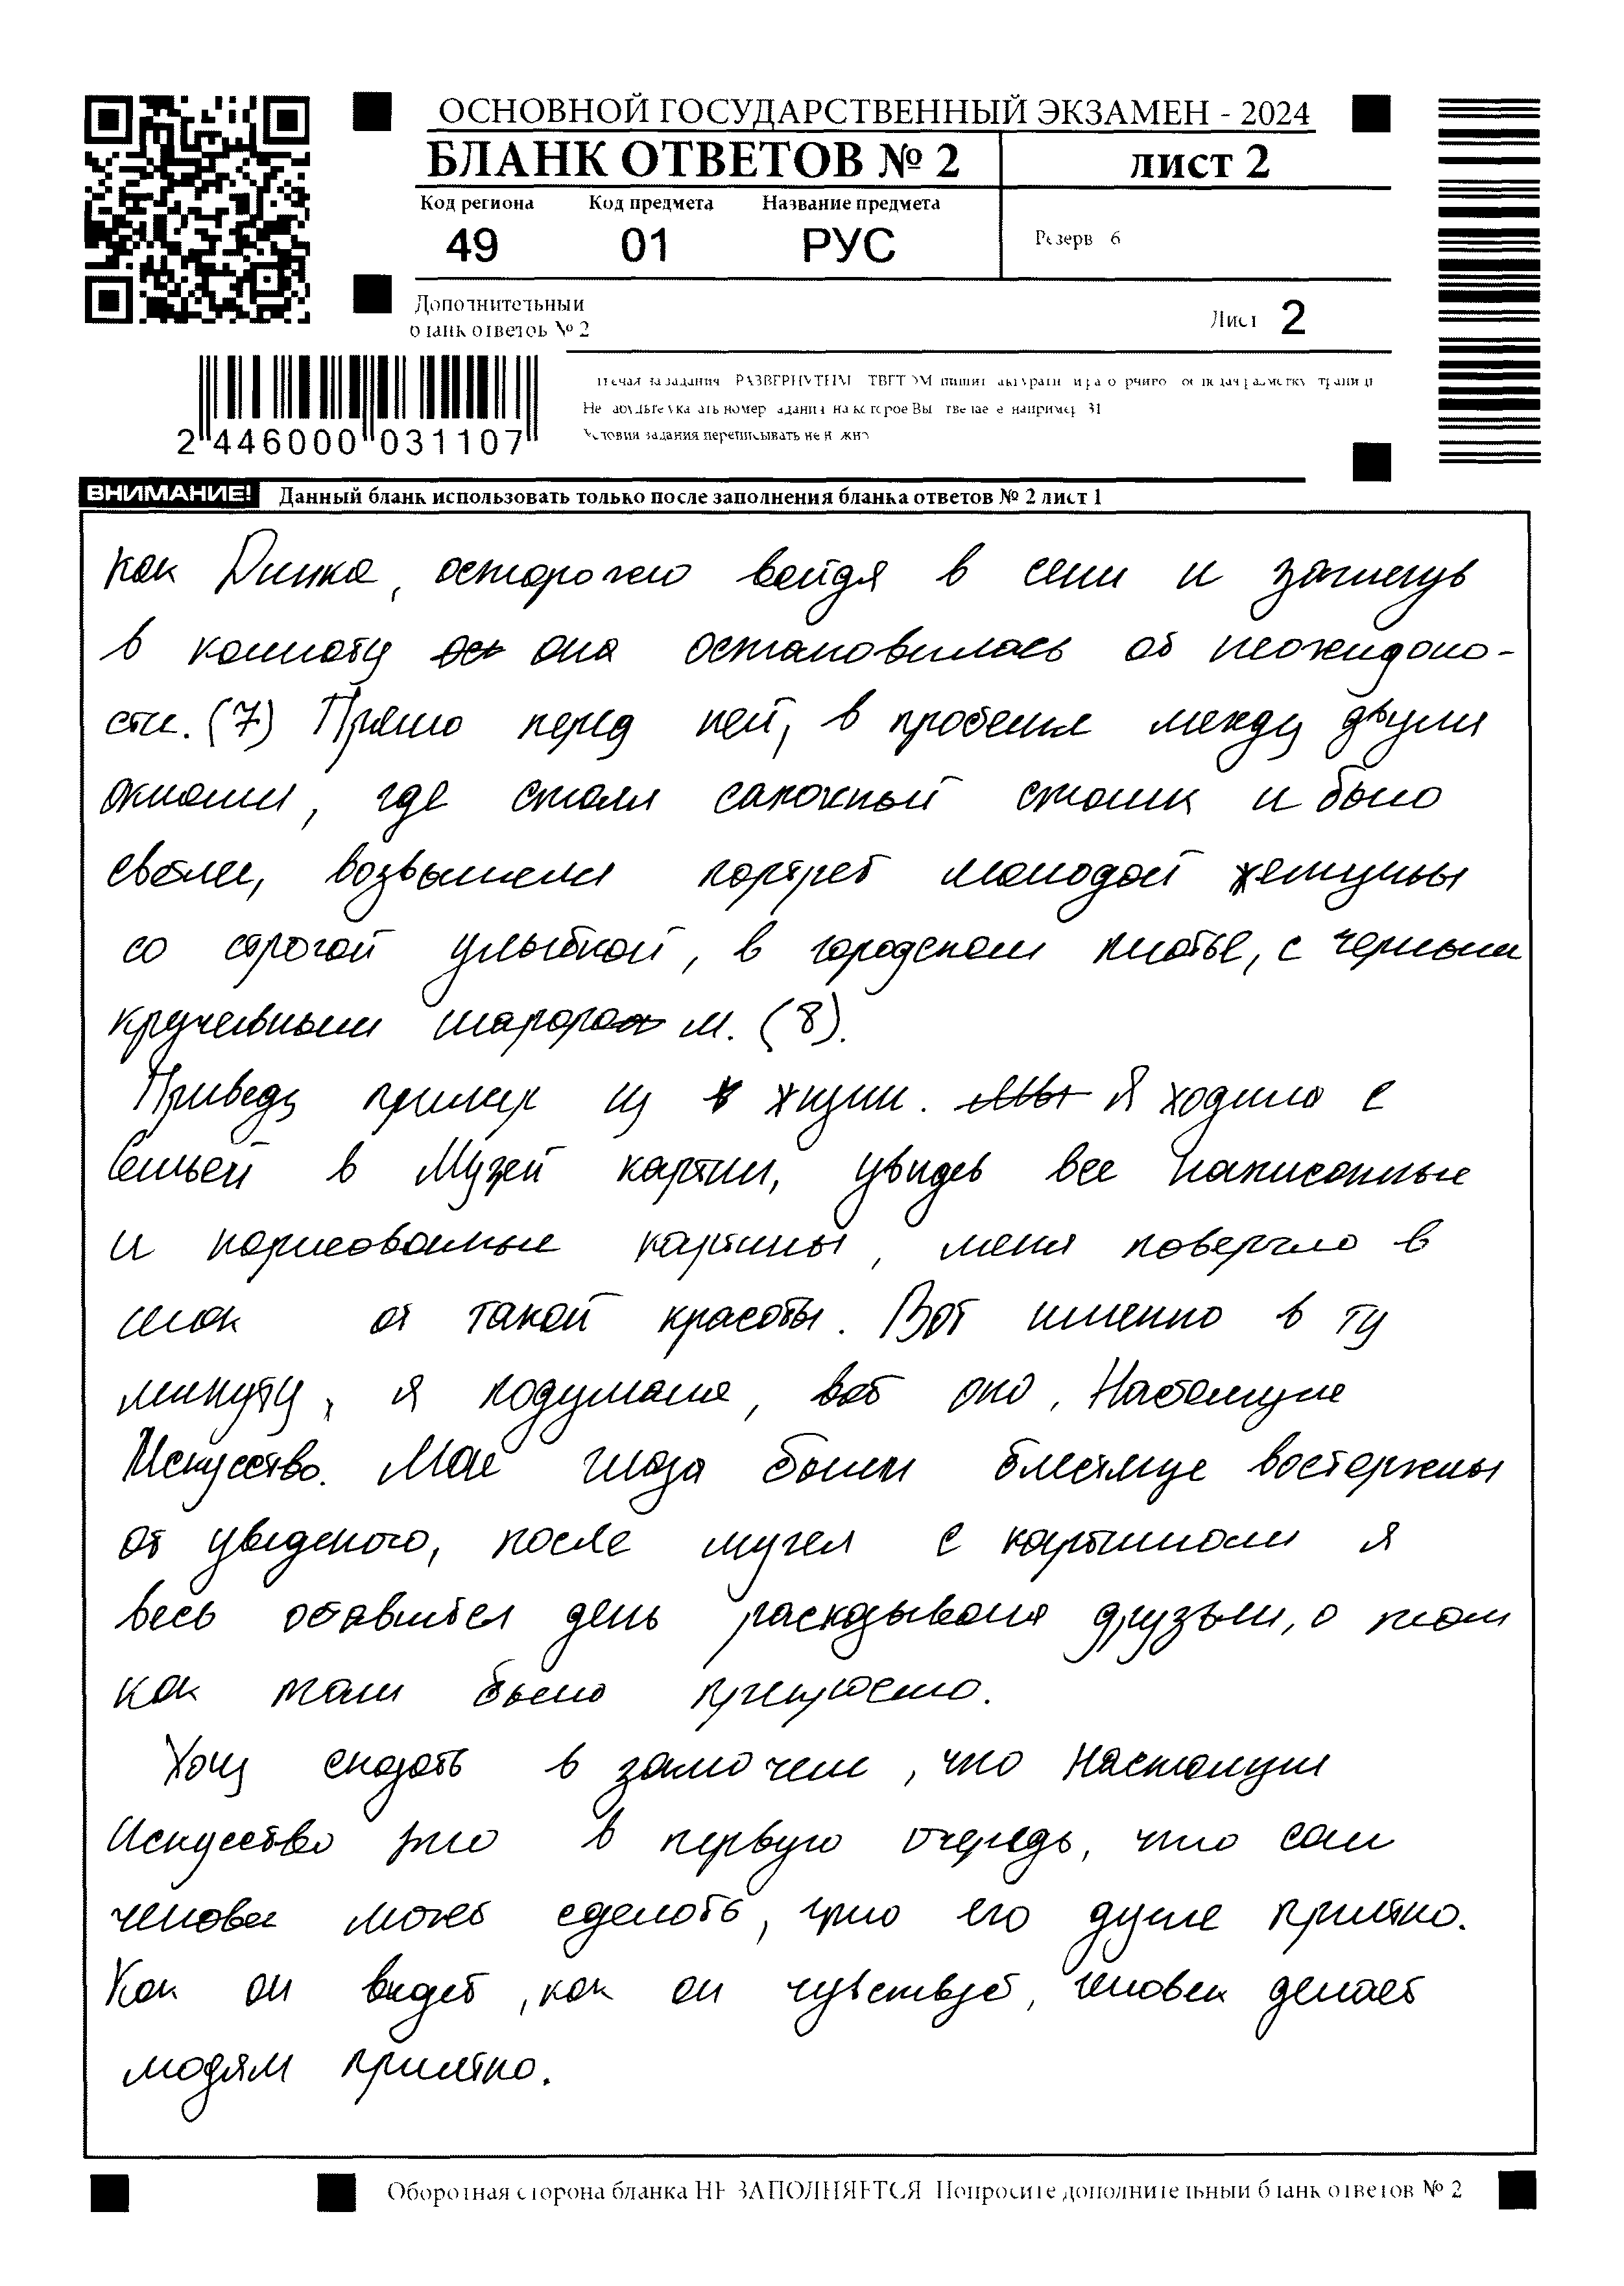 ОСНОВНОЙ ГОСУДАРСТВЕННЫЙ ЭКЗАМЕН - 2024
БЛАНК ОТВЕТОВ № 2 лист 2
Код региона Код предмета Название предмета
49 01 РУС
Резерв 6
Дополнительный
бланк ответов № 2
Лист 2
2 446000 031107
Условия задания переписывать не нужно
ВНИМАНИЕ! Данный бланк использовать только после заполнения бланка ответов № 2 лист 1
как Динка, осторожно войдя в сени и заглянув
в комнату она остановилась от неожидано-
сти. (7) Прямо перед ней, в простенке между двумя
окнами, где стоял сапожный столик и было
светлее, возвышелся портрет молодой женщины
со строгой улыбкой, в городском платье, с черным
кружевным шарфом. (8).
Приведу пример из жизни. Я ходила с
Семьей в Музей картин, увидев все написанные
и нарисованные картины, меня повергло в
шок от такой красоты. Вот именно в ту
минуту, я подумала, вот оно, Настоящие
Искусство. Мои глаза были блестящие восторжены
от увиденого, после музея с картинами я
весь оставшейся день расказывала друзьям, о том
как там было прекрасно.
Хочу сказать в заключении, что Настоящие
Искусство это в первую очередь, что сам
человек может сделать, что его душе приятно.
Как он видет, как он чувствует, человек делает
людям приятно.
Оборотная сторона бланка НЕ ЗАПОЛНЯЕТСЯ Попросите дополнительный бланк ответов № 2